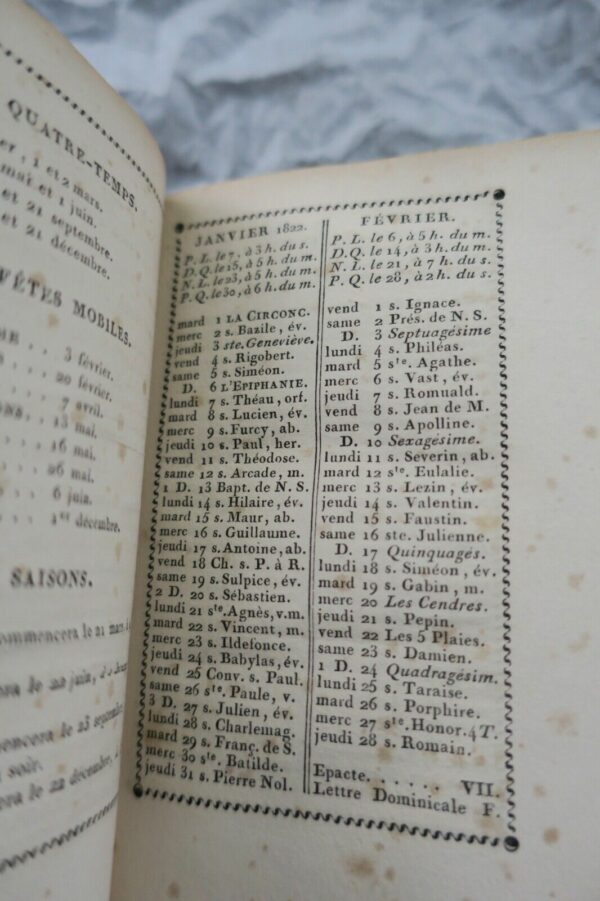 QUATRE-TEMPS.
1 et 2 mars.
mai et 1 juin.
et 21 septembre.
et 21 décembre.
FÊTES MOBILES.
3 février.
20 février.
7 avril.
13 mai.
16 mai.
26 mai.
6 juin.
1er décembre.
SAISONS.
commencera le 21 mars
le 22 juin,
le 23 septembre
soir.
le 22 décembre,
JANVIER 1822.
P. L. le 7, à 3 h. du s.
D. Q. le 15, à 5 h. du m.
N. L. le 23, à 5 h. du m.
P. Q. le 30, à 6 h. du m.
mard 1 LA CIRCONC.
merc 2 s. Bazile, év.
jeudi 3 ste. Geneviève.
vend 4 s. Rigobert.
same 5 s. Siméon.
D. 6 L'EPIPHANIE.
lundi 7 s. Théau, orf.
mard 8 s. Lucien, év.
merc 9 s. Furcy, ab.
jeudi 10 s. Paul, her.
vend 11 s. Théodose.
same 12 s. Arcade, m.
1 D. 13 Bapt. de N. S.
lundi 14 s. Hilaire, év.
mard 15 s. Maur, ab.
merc 16 s. Guillaume.
jeudi 17 s. Antoine, ab.
vend 18 Ch. s. P. à R.
same 19 s. Sulpice, év.
2 D. 20 s. Sébastien.
lundi 21 ste. Agnès, v.m.
mard 22 s. Vincent, m.
merc 23 s. Ildefonce.
jeudi 24 s. Babylas, év.
vend 25 Conv. s. Paul.
same 26 ste. Paule, v.
3 D. 27 s. Julien, év.
lundi 28 s. Charlemag.
mard 29 s. Franç. de S.
merc 30 ste. Batilde.
jeudi 31 s. Pierre Nol.
FÉVRIER.
P. L. le 6, à 5 h. du m.
D. Q. le 14, à 3 h. du m.
N. L. le 21, à 7 h. du s.
P. Q. le 28, à 2 h. du s.
vend 1 s. Ignace.
same 2 Prés. de N. S.
D. 3 Septuagésime
lundi 4 s. Philéas.
mard 5 ste. Agathe.
merc 6 s. Vast, év.
jeudi 7 s. Romuald.
vend 8 s. Jean de M.
same 9 s. Apolline.
D. 10 Sexagésime.
lundi 11 s. Severin, ab.
mard 12 ste. Eulalie.
merc 13 s. Lezin, év.
jeudi 14 s. Valentin.
vend 15 s. Faustin.
same 16 ste. Julienne.
D. 17 Quinquagés.
lundi 18 s. Siméon, év.
mard 19 s. Gabin, m.
merc 20 Les Cendres.
jeudi 21 s. Pepin.
vend 22 Les 5 Plaies.
same 23 s. Damien.
1 D. 24 Quadragésim.
lundi 25 s. Taraise.
mard 26 s. Porphire.
merc 27 ste. Honor. 4 T.
jeudi 28 s. Romain.
Epacte. . . . . . VII.
Lettre Dominicale F.